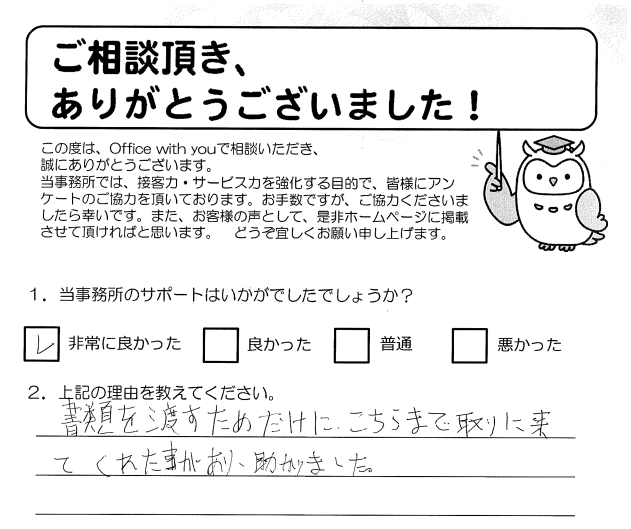 ご相談頂き、
ありがとうございました！
この度は、Office with youで相談いただき、
誠にありがとうございます。
当事務所では、接客力・サービス力を強化する目的で、皆様にアン
ケートのご協力を頂いております。お手数ですが、ご協力くださいま
したら幸いです。また、お客様の声として、是非ホームページに掲載
させて頂ければと思います。　どうぞ宜しくお願い申し上げます。
１．当事務所のサポートはいかがでしたでしょうか？
非常に良かった 良かった 普通 悪かった
２．上記の理由を教えてください。
書類を渡すためだけに、こちらまで取りに来
てくれた事があり、助かりました。